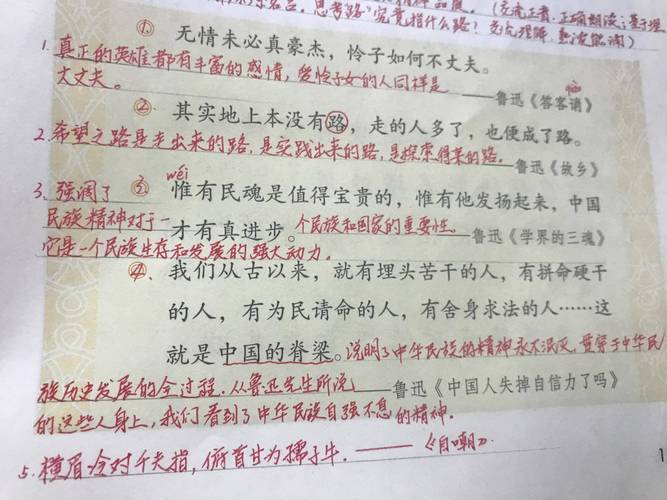 思考"路"究竟指什么路? (充满正喜,正确朗读;基于理
充充理解,熟读能诵)
① 无情未必真豪杰,怜子如何不丈夫。
1.真正的英雄都有丰富的感情,爱怜子女的人同样是
丈丈夫。
——鲁迅《答客诮》
qiào
② 其实地上本没有路,走的人多了,也便成了路。
2.希望之路是走出来的路,是实践出来的路,是探索得来的路。
——鲁迅《故乡》
wéi
③ 惟有民魂是值得宝贵的,惟有他发扬起来,中国
3.强调了
民族精神对于一
才有真进步。
个民族和国家的重要性。
——鲁迅《学界的三魂》
它是一个民族生存和发展的强大动力。
④ 我们从古以来,就有埋头苦干的人,有拼命硬干
的人,有为民请命的人,有舍身求法的人……这
就是中国的脊梁。
说明了中华民族的精神永不泯灭,贯穿于中华民
族历史发展的全过程.从鲁迅先生所说
——鲁迅《中国人失掉自信力了吗》
的这些人身上,我们看到了中华民族自强不息的精神。
5.横眉冷对千夫指,俯首甘为孺子牛.——《自嘲》.
1